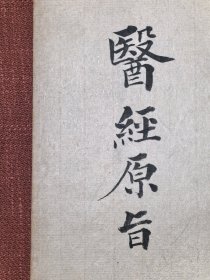 醫經原旨